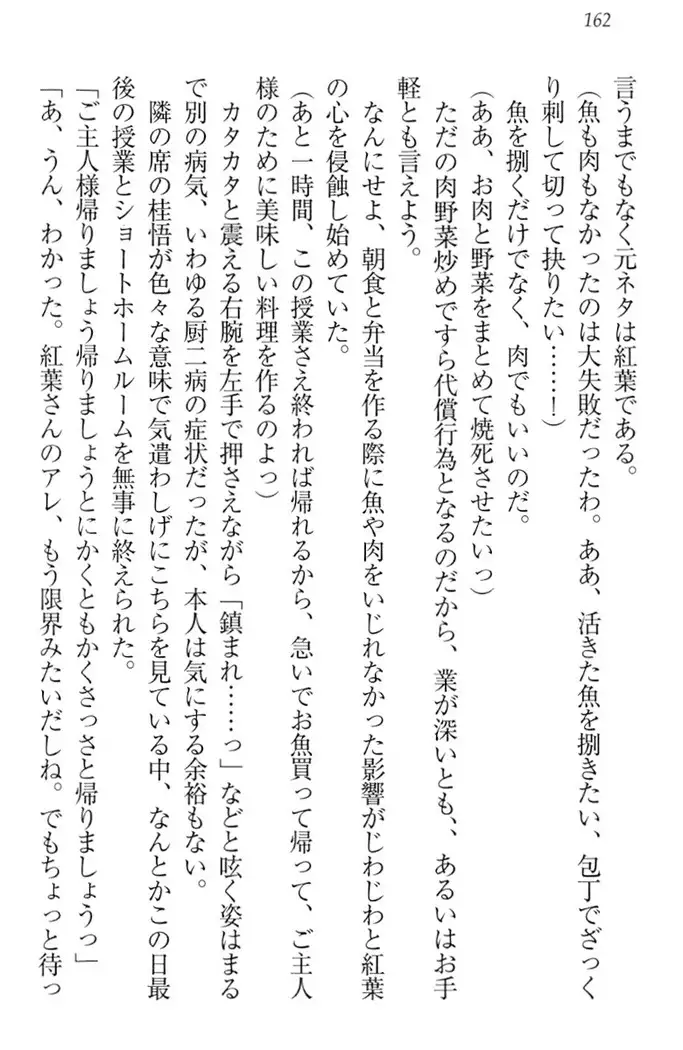 162
言うまでもなく元ネタは紅葉である。
（魚も肉もなかったのは大失敗だったわ。ああ、活きた魚を捌きたい、包丁でざっく
り刺して切って抉りたい……！）
魚を捌くだけでなく、肉でもいいのだ。
（ああ、お肉と野菜をまとめて焼死させたいっ）
ただの肉野菜炒めですら代償行為となるのだから、業が深いとも、、あるいはお手
軽とも言えよう。
なんにせよ、朝食と弁当を作る際に魚や肉をいじれなかった影響がじわじわと紅葉
の心を侵蝕し始めていた。
（あと一時間、この授業さえ終われば帰れるから、急いでお魚買って帰って、ご主人
様のために美味しい料理を作るのよっ）
カタカタと震える右腕を左手で押さえながら「鎮まれ……っ」などと呟く姿はまる
で別の病気、いわゆる厨二病の症状だったが、本人は気にする余裕もない。
隣の席の桂悟が色々な意味で気遣わしげにこちらを見ている中、なんとかこの日最
後の授業とショートホームルームを無事に終えられた。
「ご主人様帰りましょう帰りましょうとにかくともかくさっさと帰りましょうっ」
「あ、うん、わかった。紅葉さんのアレ、もう限界みたいだしね。でもちょっと待っ